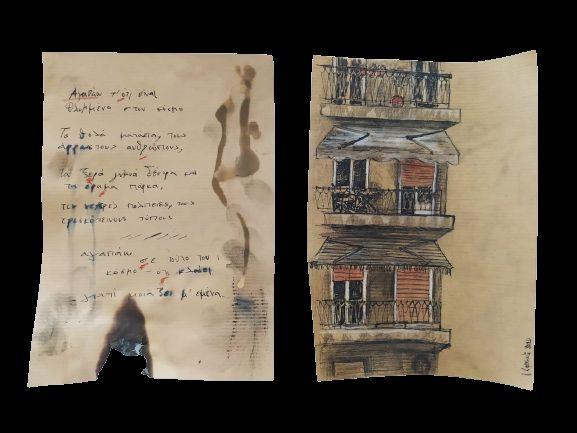 Αγαπάω τ' ότι είναι
θλιμμένο στον κόσμο
Τα θολά ματάκια, τους
αρρώστους ανθρώπους,
τα ξερά γυμνά δέντρα και
τα έρημα πάρκα,
τις νεκρές πολιτείες, τους
τρισκότεινους τόπους
αγαπάω σε τούτο τον
κόσμο - ότι κλαίει
γιατί μοιάζει μ' εμένα.